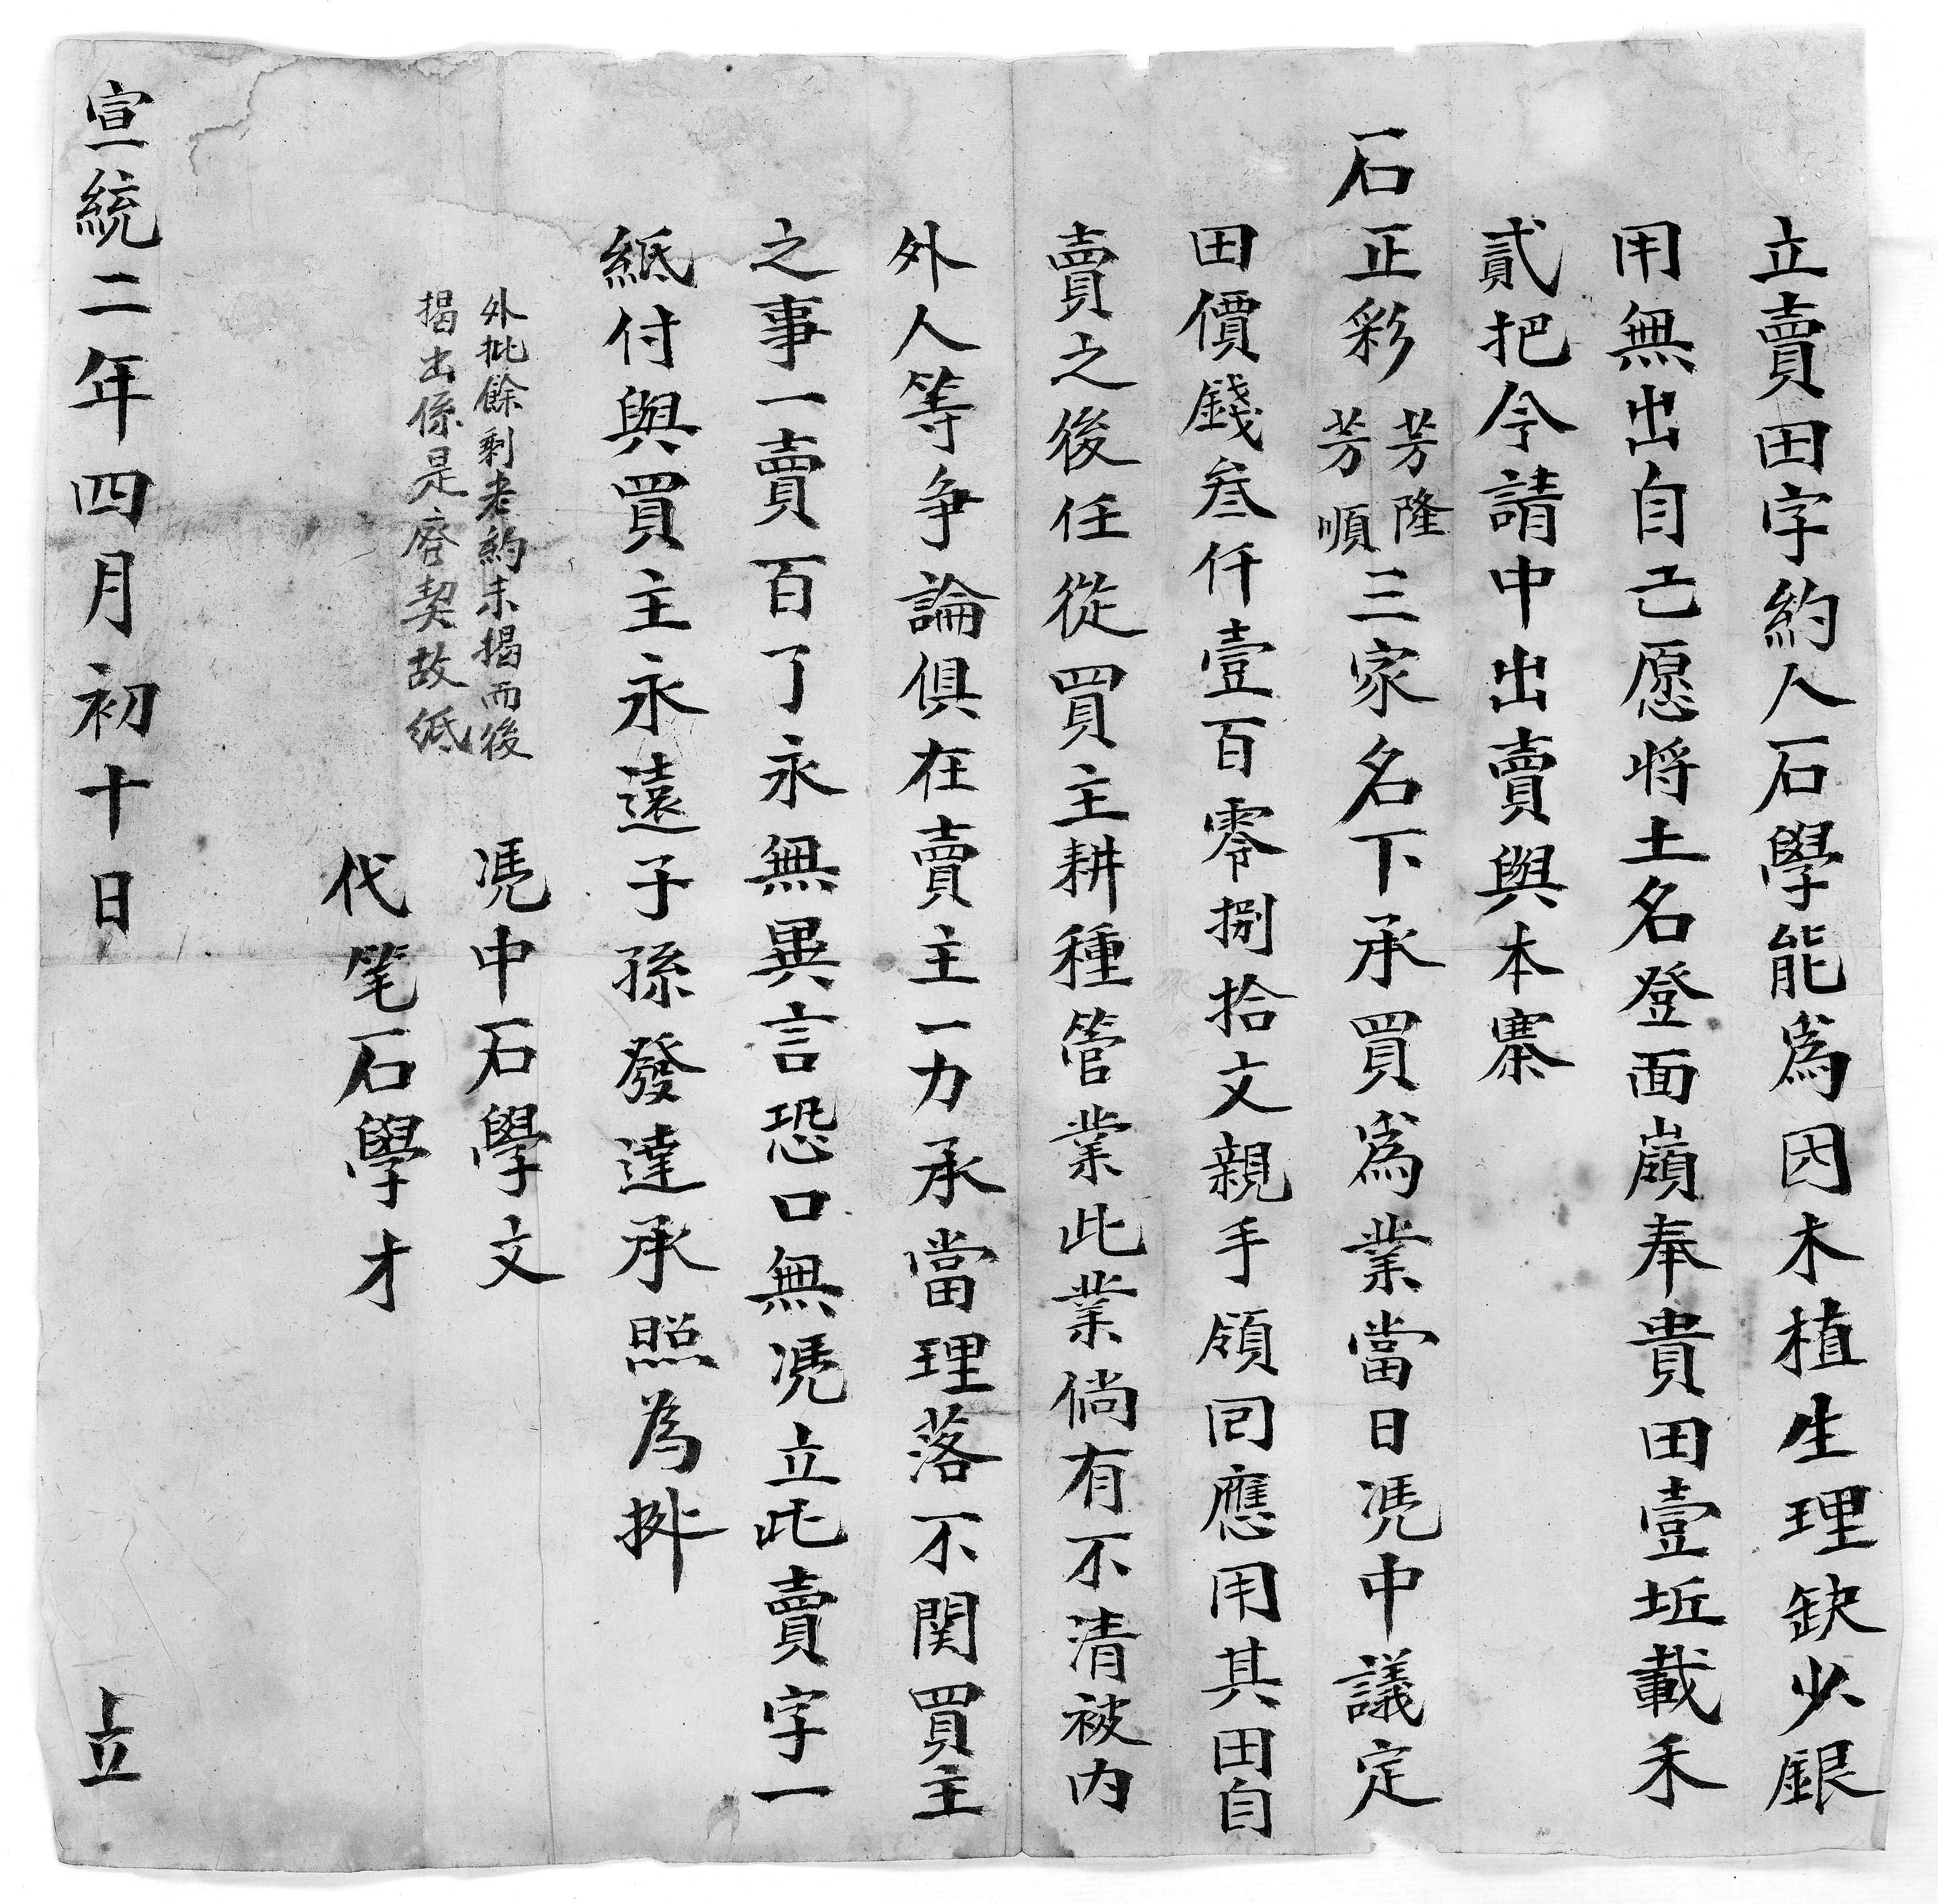 立賣田字約人石學能爲因木植生理缺少銀
用無出自己愿将土名登面嶺奉貴田壹坵載禾
貳把今請中出賣與本寨
石正彩芳隆芳順三家名下承買爲業當日凴中議定
田價錢叁仟壹百零捌拾文親手領囘應用其田自
賣之後任從買主耕種管業此業倘有不清被内
外人等争論俱在賣主一力承當理落不関買主
之事一賣百了永無異言恐口無凴立此賣字一
紙付與買主永遠子孫發達承照為
外批餘剩老約未揭而後
揭出係是廢契故紙
凴中石學文
代笔石學才
宣統二年四月初十日立